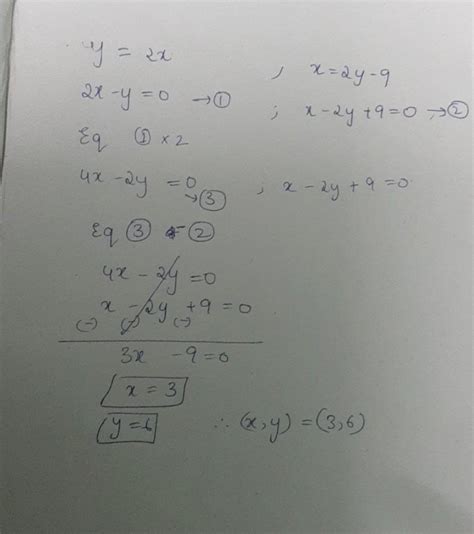 y = 2x ; x = 2y - 9
2x - y = 0 → ① ; x - 2y + 9 = 0 → ②
Eq ① × 2
4x - 2y = 0 → ③ ; x - 2y + 9 = 0
Eq ③ - ②
4x - 2y = 0
x - 2y + 9 = 0
(-) (-) (-)
3x - 9 = 0
x = 3
y = 6 ∴ (x, y) = (3, 6)